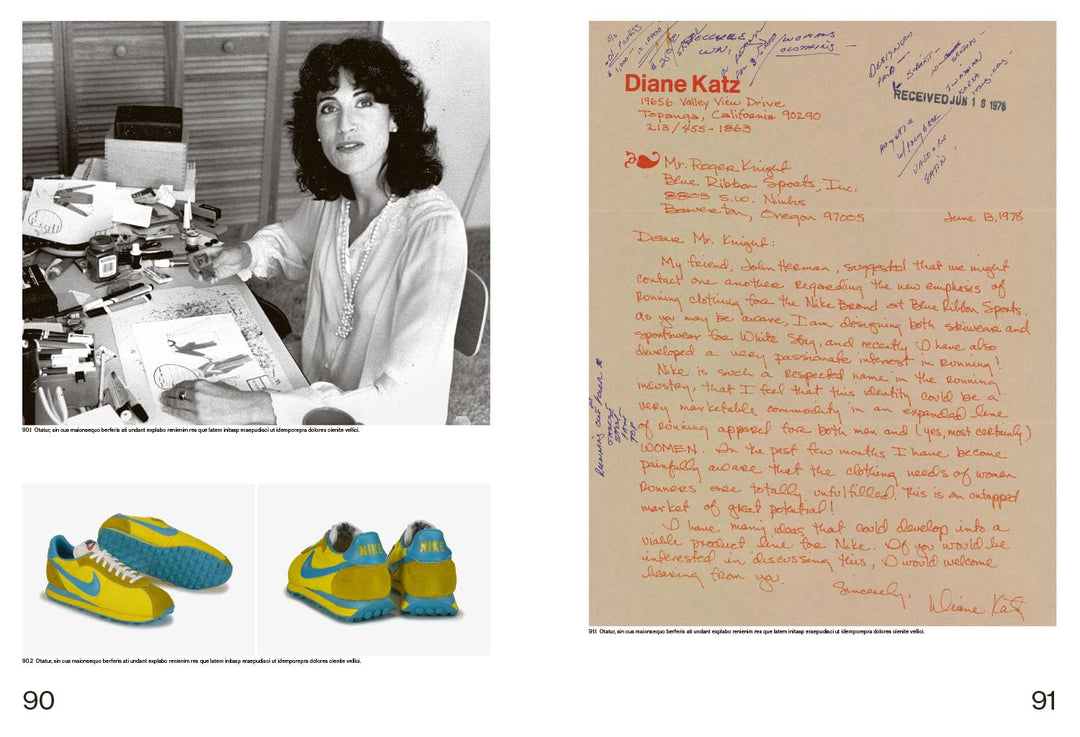 90.1 Otatur, sin cus maionsequo berferis ati undant explabo renienim res que latem initasp eraepudisci ut idemporepra dolores cienite vellici.
NIKE
NIKE
90.2 Otatur, sin cus maionsequo berferis ati undant explabo renienim res que latem initasp eraepudisci ut idemporepra dolores cienite vellici.
90
WOMANS
CLOTHING
DESIGNER
PAID
SUBMIT
RECEIVED JUN 16 1978
Diane Katz
19656 Valley View Drive
Topanga, California 90290
213/455-1863
Mr. Roger Knight
Blue Ribbon Sports, Inc.
8803 S.W. Nimbus
Beaverton, Oregon 97005
June 13, 1978
Dear Mr. Knight:
My friend, John Herman, suggested that we might
contact one another regarding the new emphasis of
running clothing for the Nike Brand at Blue Ribbon Sports.
As you may be aware, I am designing both skiwear and
sportswear for White Stag, and recently I have also
developed a very passionate interest in running!
Nike is such a respected name in the running
industry, that I feel that this identity could be a
very marketable commodity in an expanded line
of running apparel for both men and (yes, most certainly)
WOMEN. In the past few months I have become
painfully aware that the clothing needs of women
runners are totally unfulfilled. This is an untapped
market of great potential!
I have many ideas that could develop into a
viable product line for Nike. If you would be
interested in discussing this, I would welcome
hearing from you.
Sincerely,
Diane Katz
91.1 Otatur, sin cus maionsequo berferis ati undant explabo renienim res que latem initasp eraepudisci ut idemporepra dolores cienite vellici.
91